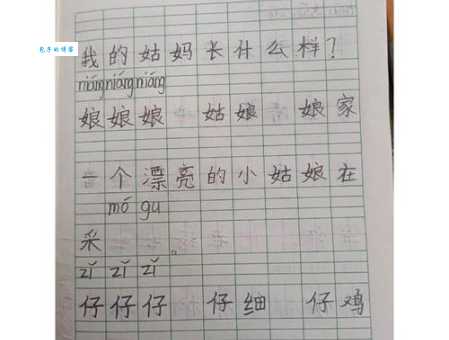 我的姑妈长什么样？
niáng niáng niáng
娘娘娘 姑娘 娘家
一个漂亮的小姑娘在
mó gu
采 。
zǐ zǐ zǐ
仔仔仔 仔细 仔鸡